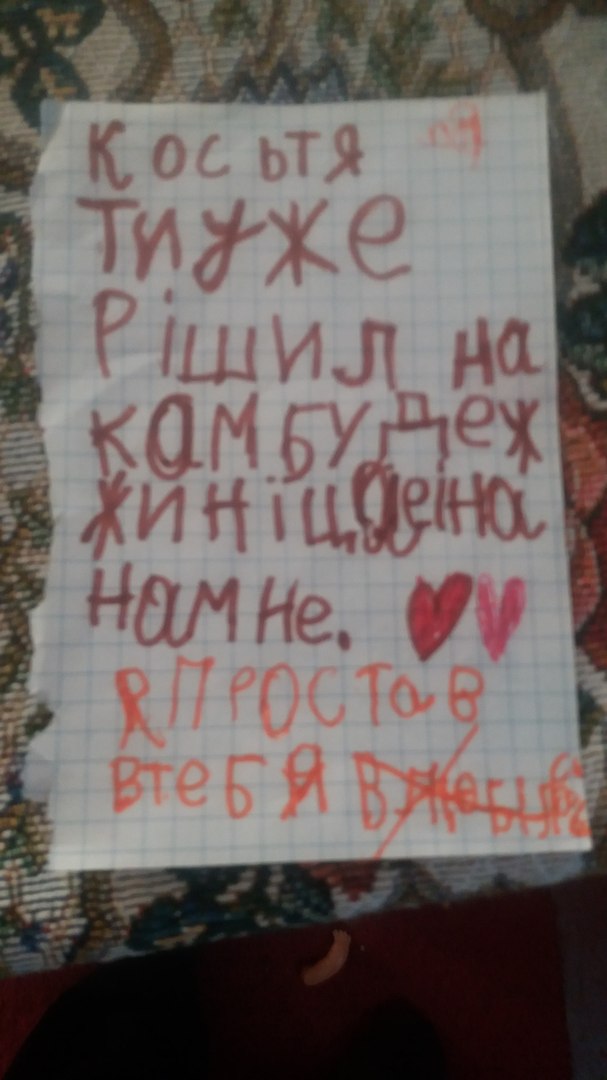 Косьтя
ти уже
рішил на
ком будеж
жиніцаеі на
нам не.
я проста в
втебя